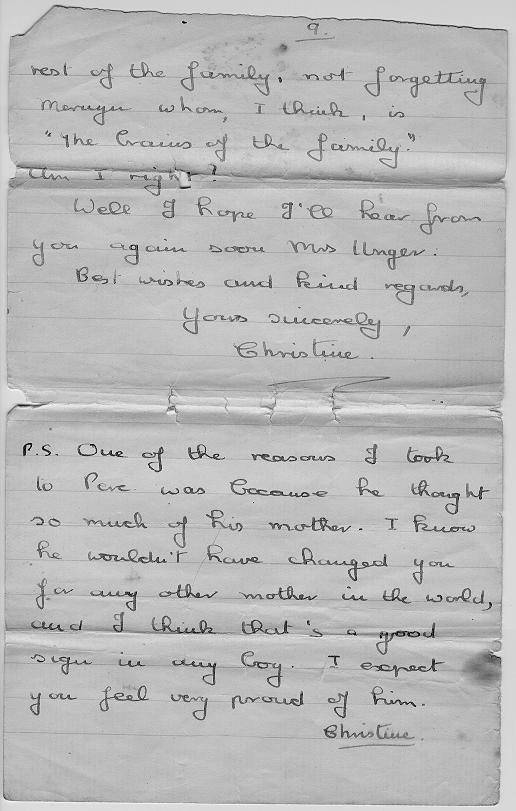 9.
rest of the family, not forgetting
Mervyn whom, I think, is
"the brains of the family."
Am I right?
Well I hope I'll hear from
you again soon Mrs Unger.
Best wishes and kind regards,
Yours sincerely,
Christine.
P.S. One of the reasons I took
to Perc. was because he thought
so much of his mother. I know
he wouldn't have changed you
for any other mother in the world,
and I think that's a good
sign in any boy. I expect
you feel very proud of him.
Christine.